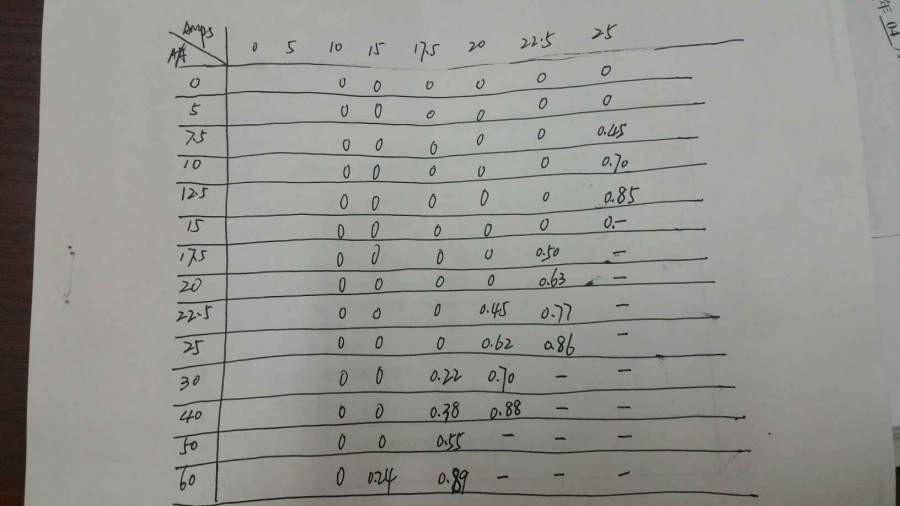 Amps 0 5 10 15 17.5 20 22.5 25
0 0 0 0 0 0 0
5 0 0 0 0 0 0
7.5 0 0 0 0 0 0.45
10 0 0 0 0 0 0.70
12.5 0 0 0 0 0 0.85
15 0 0 0 0 0 0.-
17.5 0 0 0 0 0.50 -
20 0 0 0 0 0.63 -
22.5 0 0 0 0.45 0.77 -
25 0 0 0 0.62 0.86 -
30 0 0 0.22 0.70 - -
40 0 0 0.38 0.88 - -
50 0 0 0.55 - - -
60 0 0.24 0.89 - - -
年 04